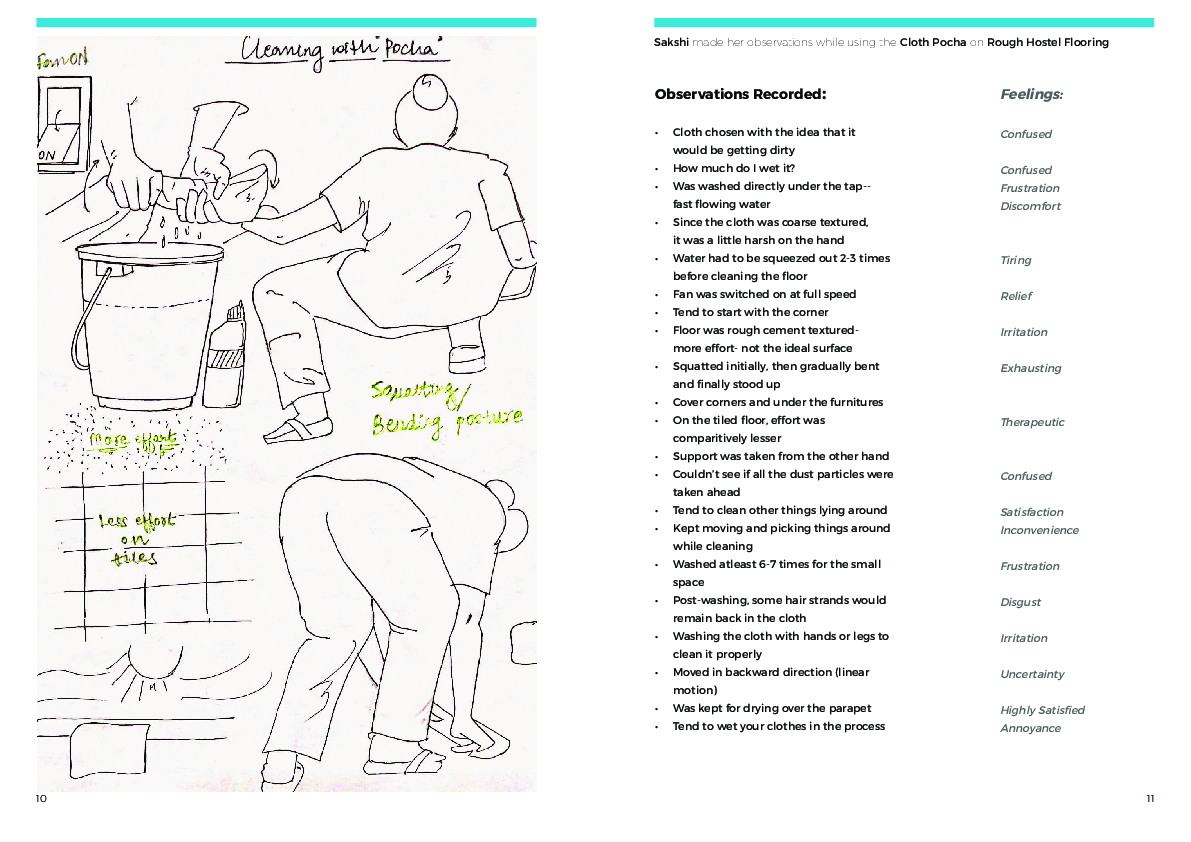 Cleaning with "Pocha"
Fan ON
ON
Squatting/
Bending posture
More effort
Less effort
on
tiles
10
Sakshi made her observations while using the Cloth Pocha on Rough Hostel Flooring
Observations Recorded:
Feelings:
• Cloth chosen with the idea that it
would be getting dirty
Confused
• How much do I wet it?
Confused
• Was washed directly under the tap--
Frustration
fast flowing water
Discomfort
• Since the cloth was coarse textured,
it was a little harsh on the hand
• Water had to be squeezed out 2-3 times
before cleaning the floor
Tiring
• Fan was switched on at full speed
Relief
• Tend to start with the corner
• Floor was rough cement textured-
more effort- not the ideal surface
Irritation
• Squatted initially, then gradually bent
and finally stood up
Exhausting
• Cover corners and under the furnitures
• On the tiled floor, effort was
comparitively lesser
Therapeutic
• Support was taken from the other hand
• Couldn't see if all the dust particles were
taken ahead
Confused
• Tend to clean other things lying around
Satisfaction
• Kept moving and picking things around
while cleaning
Inconvenience
• Washed atleast 6-7 times for the small
space
Frustration
• Post-washing, some hair strands would
remain back in the cloth
Disgust
• Washing the cloth with hands or legs to
clean it properly
Irritation
• Moved in backward direction (linear
motion)
Uncertainty
• Was kept for drying over the parapet
Highly Satisfied
• Tend to wet your clothes in the process
Annoyance
11